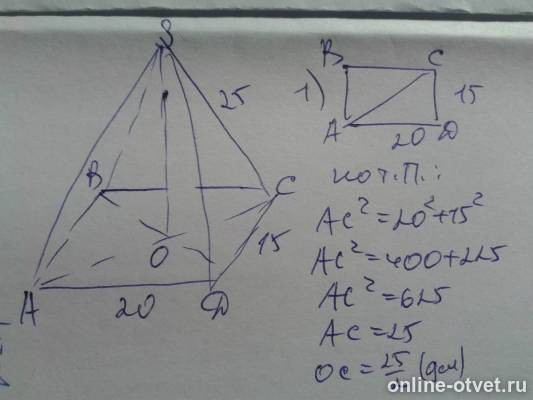 S
25
B
C
O
15
A
20
D
1)
B
C
15
A
20
D
по т.П.:
AC²=20²+15²
AC²=400+225
AC²=625
AC=25
OC=25/2 (дм)
online-otvet.ru